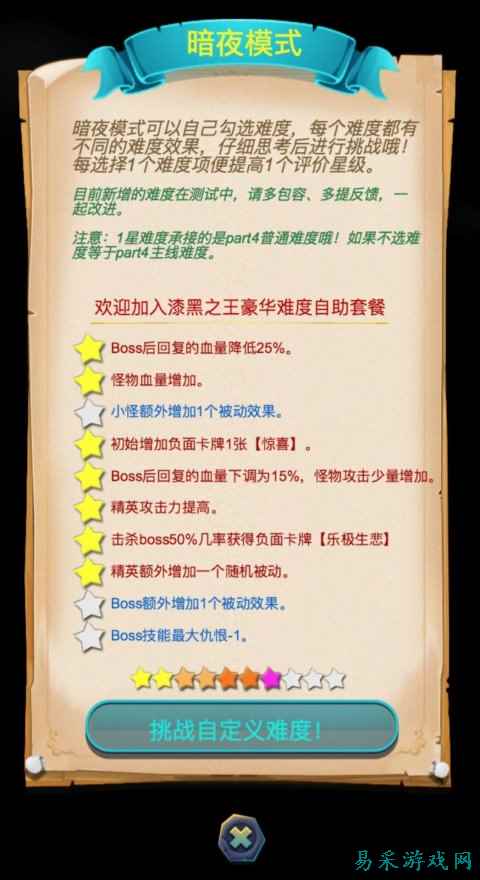 暗夜模式
暗夜模式可以自己勾选难度，每个难度都有
不同的难度效果，仔细思考后进行挑战哦！
每选择1个难度项便提高1个评价星级。
目前新增的难度在测试中，请多包容、多提反馈，一
起改进。
注意：1星难度承接的是part4普通难度哦！如果不选难
度等于part4主线难度。
欢迎加入漆黑之王豪华难度自助套餐
Boss后回复的血量降低25%。
怪物血量增加。
小怪额外增加1个被动效果。
初始增加负面卡牌1张【惊喜】。
Boss后回复的血量下调为15%，怪物攻击少量增加。
精英攻击力提高。
击杀boss50%几率获得负面卡牌【乐极生悲】
精英额外增加一个随机被动。
Boss额外增加1个被动效果。
Boss技能最大仇恨-1。
挑战自定义难度！
易采游戏网